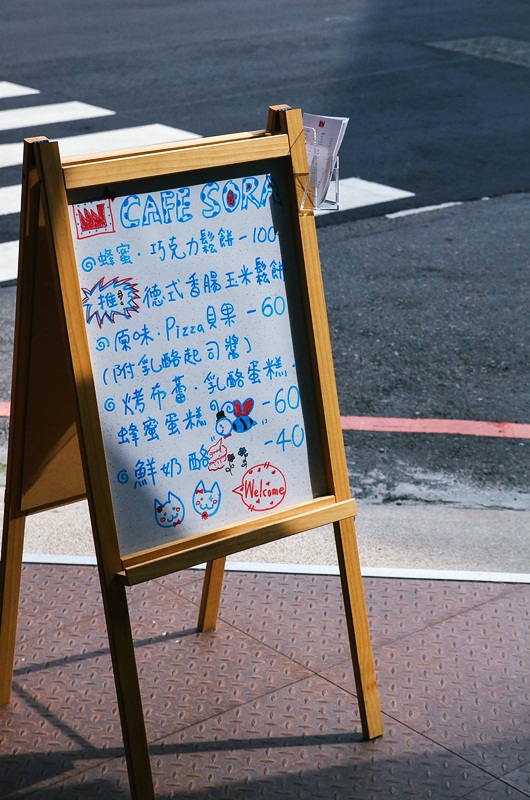 CAFE SORA
蜂蜜·巧克力鬆餅-100
推 德式香腸玉米鬆餅
原味·Pizza貝果-60
(附乳酪起司醬)
烤布蕾·乳酪蛋糕·
蜂蜜蛋糕 -60
鮮奶酪 -40
Welcome